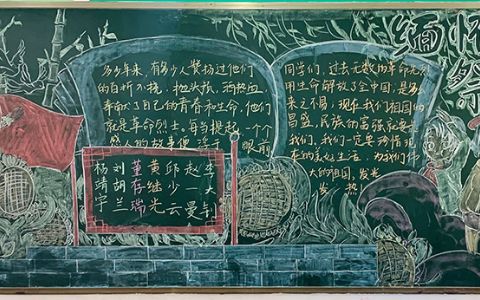 多少年来,有多少人赞扬过他们
的百折不挠,抛头颅,洒热血
奉献了自己的青春和生命,他们
就是革命烈士。每当提起一个个
感人的故事便浮于眼前
同学们,过去无数的革命先烈
用生命解放了全中国,是多
来之不易,现在我们祖国的
昌盛,民族的富强就要
我们,我们一定要珍惜现
在的美好生活,为我们伟
大的祖国,发光
发热
缅怀
祭
杨靖宇
刘胡兰
董存瑞
黄继光
邱少云
赵一曼
李大钊